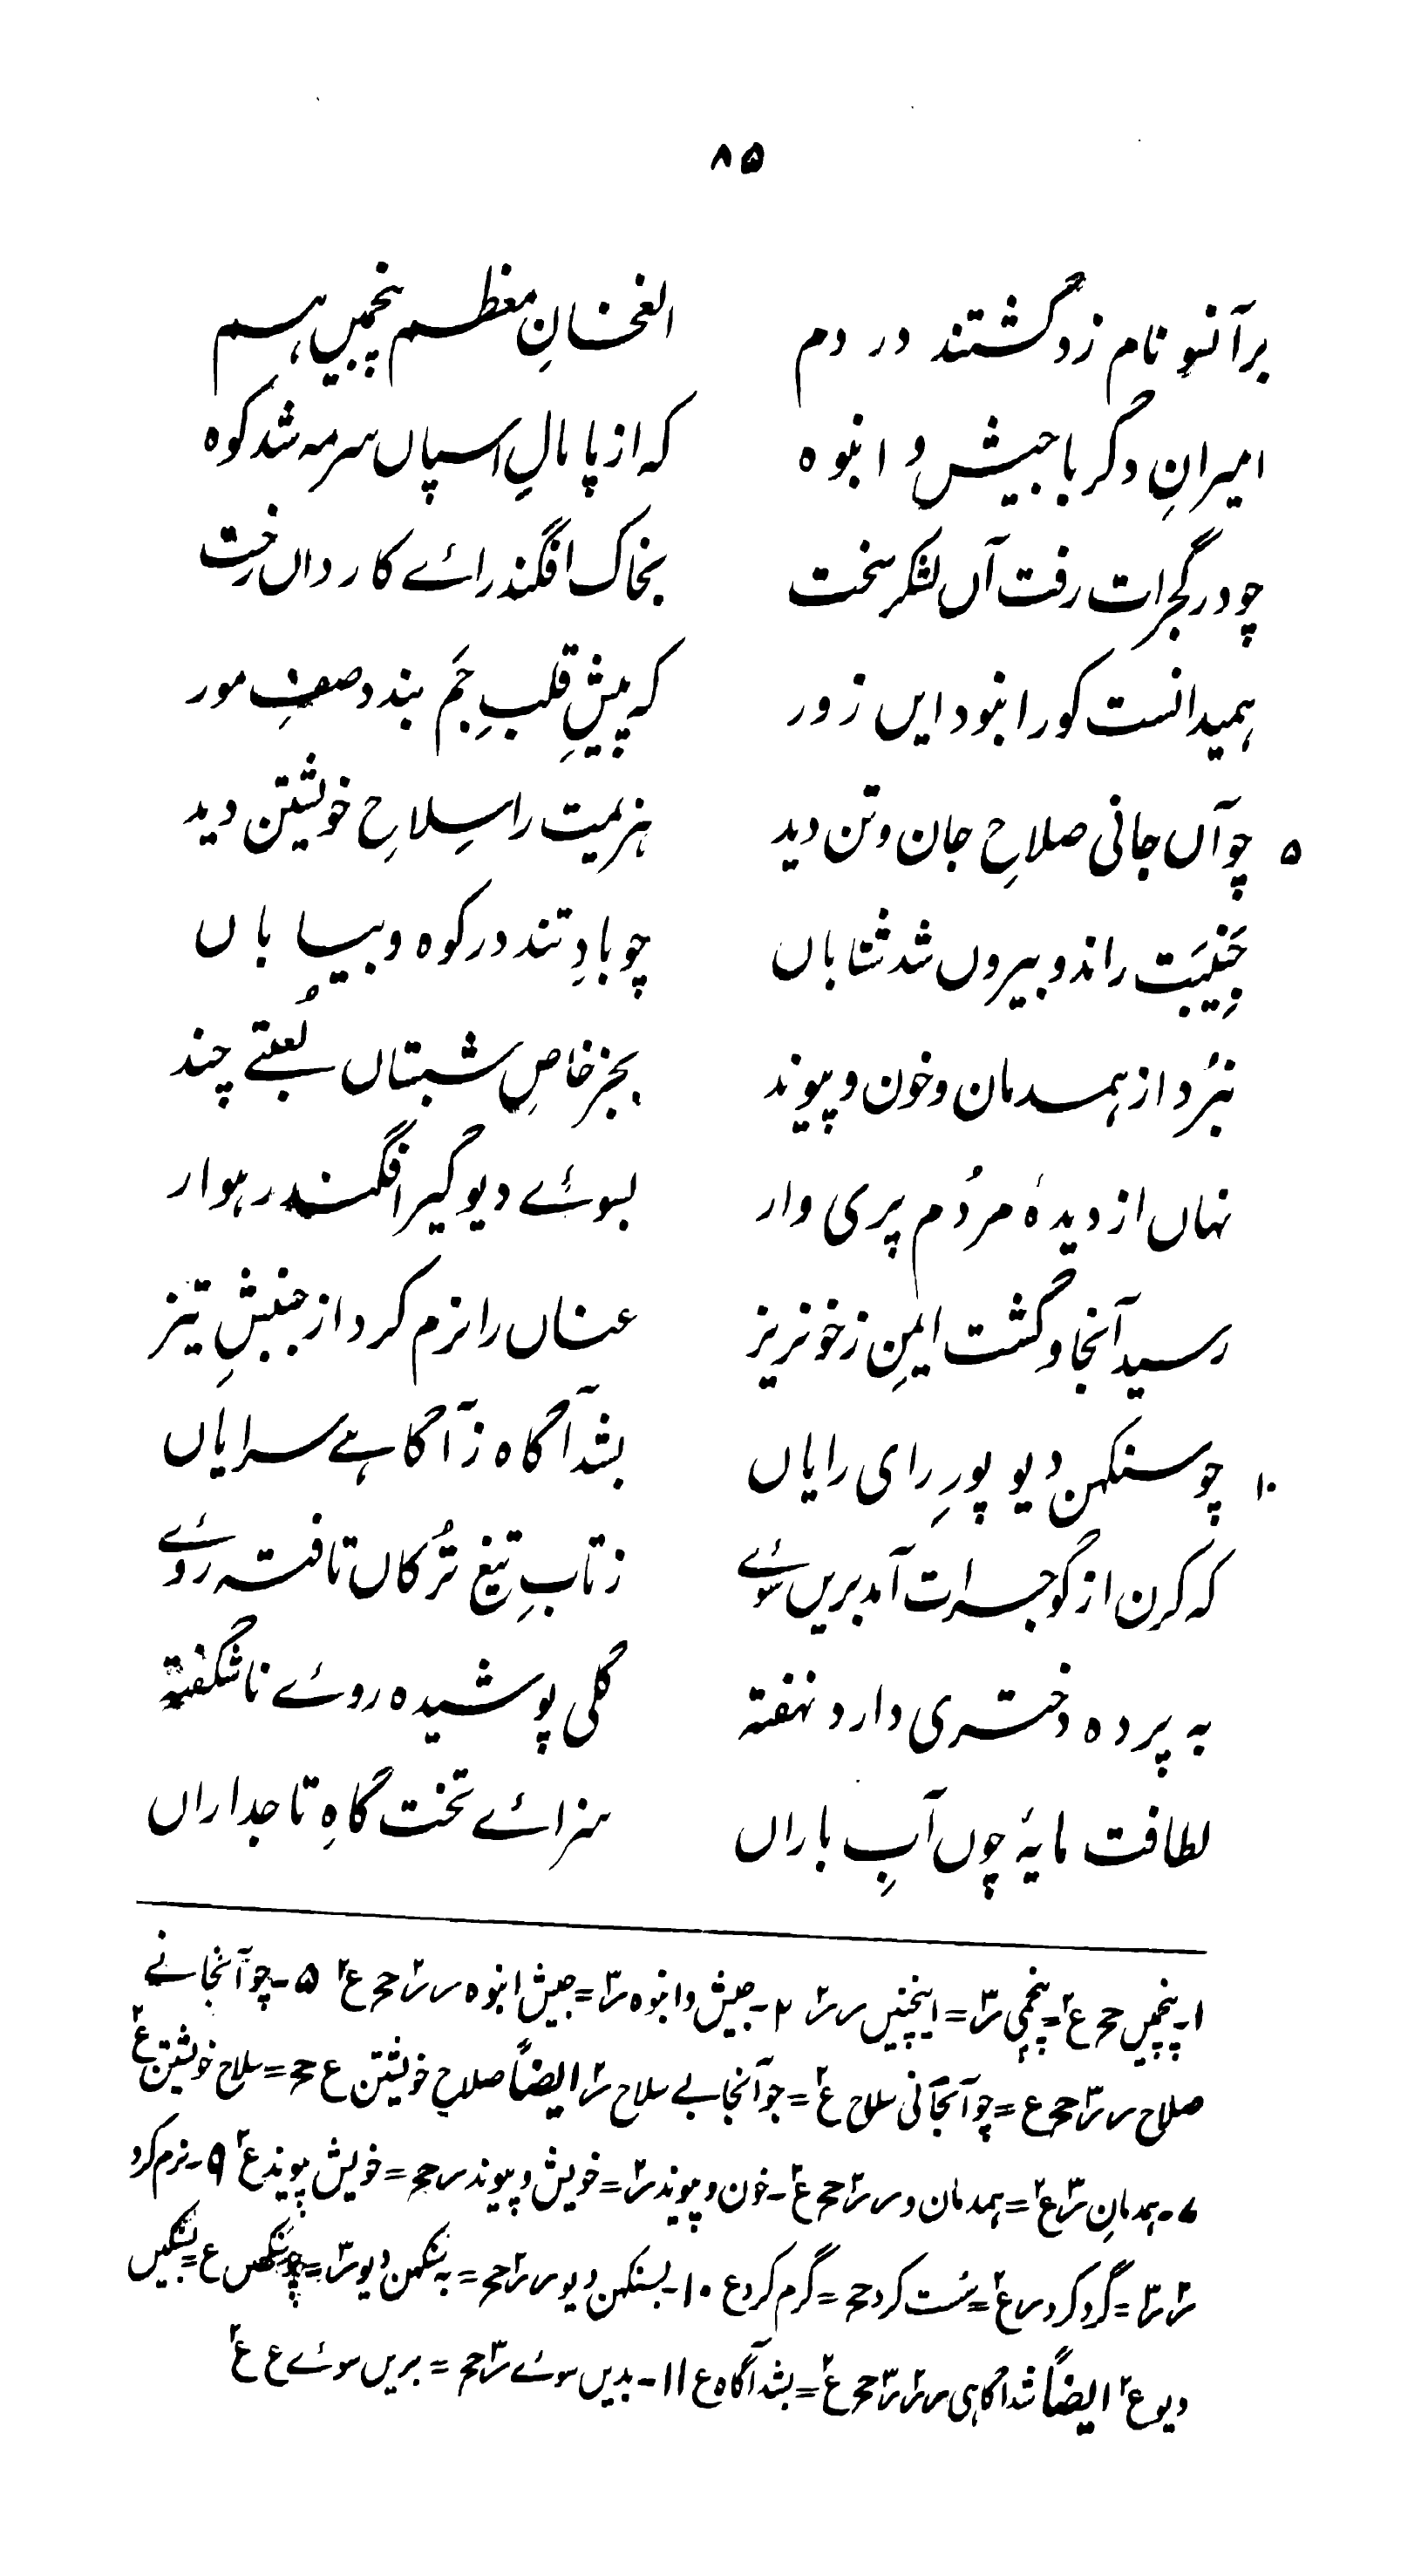 ۸۵
برآنسو نام زد گشتند در دم الغخانِ معظم پنجمیں ہم
امیرانِ دگر با جیش و انبوہ کہ از پامالِ اسپاں سرمہ شد کوہ
چو در گجرات رفت آں لشکر سخت بخاک افگند رائے کارداں رخت
ہمیدانست کورا نبود ایں زور کہ پیشِ قلبِ جَم بندد صفِ مور
۵ چو آں جانی صلاحِ جان و تن دید ہزیمت را سِلاحِ خویشتن دید
جَنیِبَت راند و بیروں شد شتاباں چو بادِ تند در کوہ و بیاباں
نبُرد از ہمدمان و خون و پیوند بجز خاصِ شبستاں لُعبتے چند
نہاں از دیدہٴ مردُم پری وار بسوئے دیوگیر افگند رہوار
رسید آنجا و گشت ایمن زخونریز عناں را نرم کرد از جنبشِ تیز
۱۰ چو سنکہن دیو پورِ رای رایاں بشد آگاہ ز آگاہے سرایاں
کہ کرن از گوجرات آمد بریں سُوئے ز تابِ تیغ تُرکاں تافتہ روئے
بہ پردہ دختری دارد نہفتہ گلی پوشیدہ روئے ناشگفتہ
لطافت مایۂ چوں آبِ باراں سزائے تخت گاہِ تاجداراں
۱۔ پنجمیں حج ع۲= پنجمی ر۳= اینچنیں ر ر۲ ۲۔ جیش و انبوہ ر۳= جیش انبوہ ر ر۲ حج ع۲ ۵۔ چو آنجانے
صلاح ر ر۳ حج ع= چو آنجانی سلاح ع۲= چو آنجا بے سلاح ر۲ ایضاً صلاح خویشتن ع حج= سلاح خویشتن ع۲
۷۔ ہمدمانِ ر۳ ع۲= ہمدمان و ر ر۲ حج ع۲۔ خون و پیوند ر۲= خویش و پیوند ر حج= خویش پیوند ع۲ ۹۔ نرم کرد
ر۲ ر۳= گرد کرد ر ع۲= سُست کرد حج= گرم کرد ع ۱۰۔ بسنکہن دیو ر ر۲ حج= بہ سنکہن دیو ر۳= ع=
دیو ع۲ ایضاً شد آگاہی ر ر۲ ر۳ حج ع۲= بشد آگاہ ع ۱۱۔ بدیں سوئے ر۳ حج= بریں سوئے ع ع۲